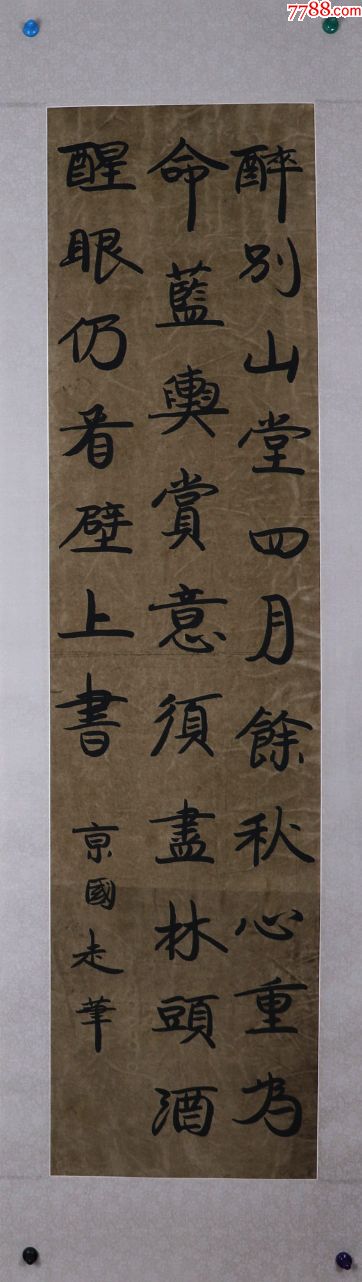 7788.com
醉別山堂四月餘秋心重為
命藍輿賞意須盡林頭酒
醒眼仍看壁上書
京國走筆